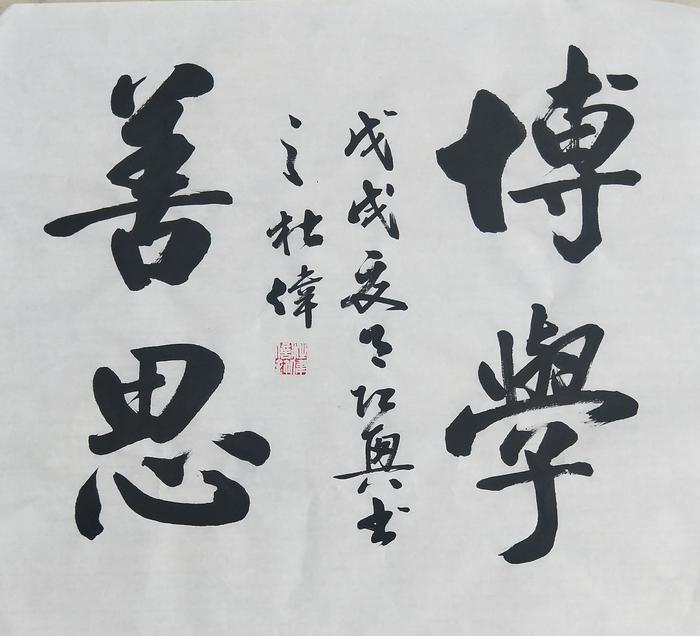 博學
戊戌夏日乘興書
之杜偉
善思